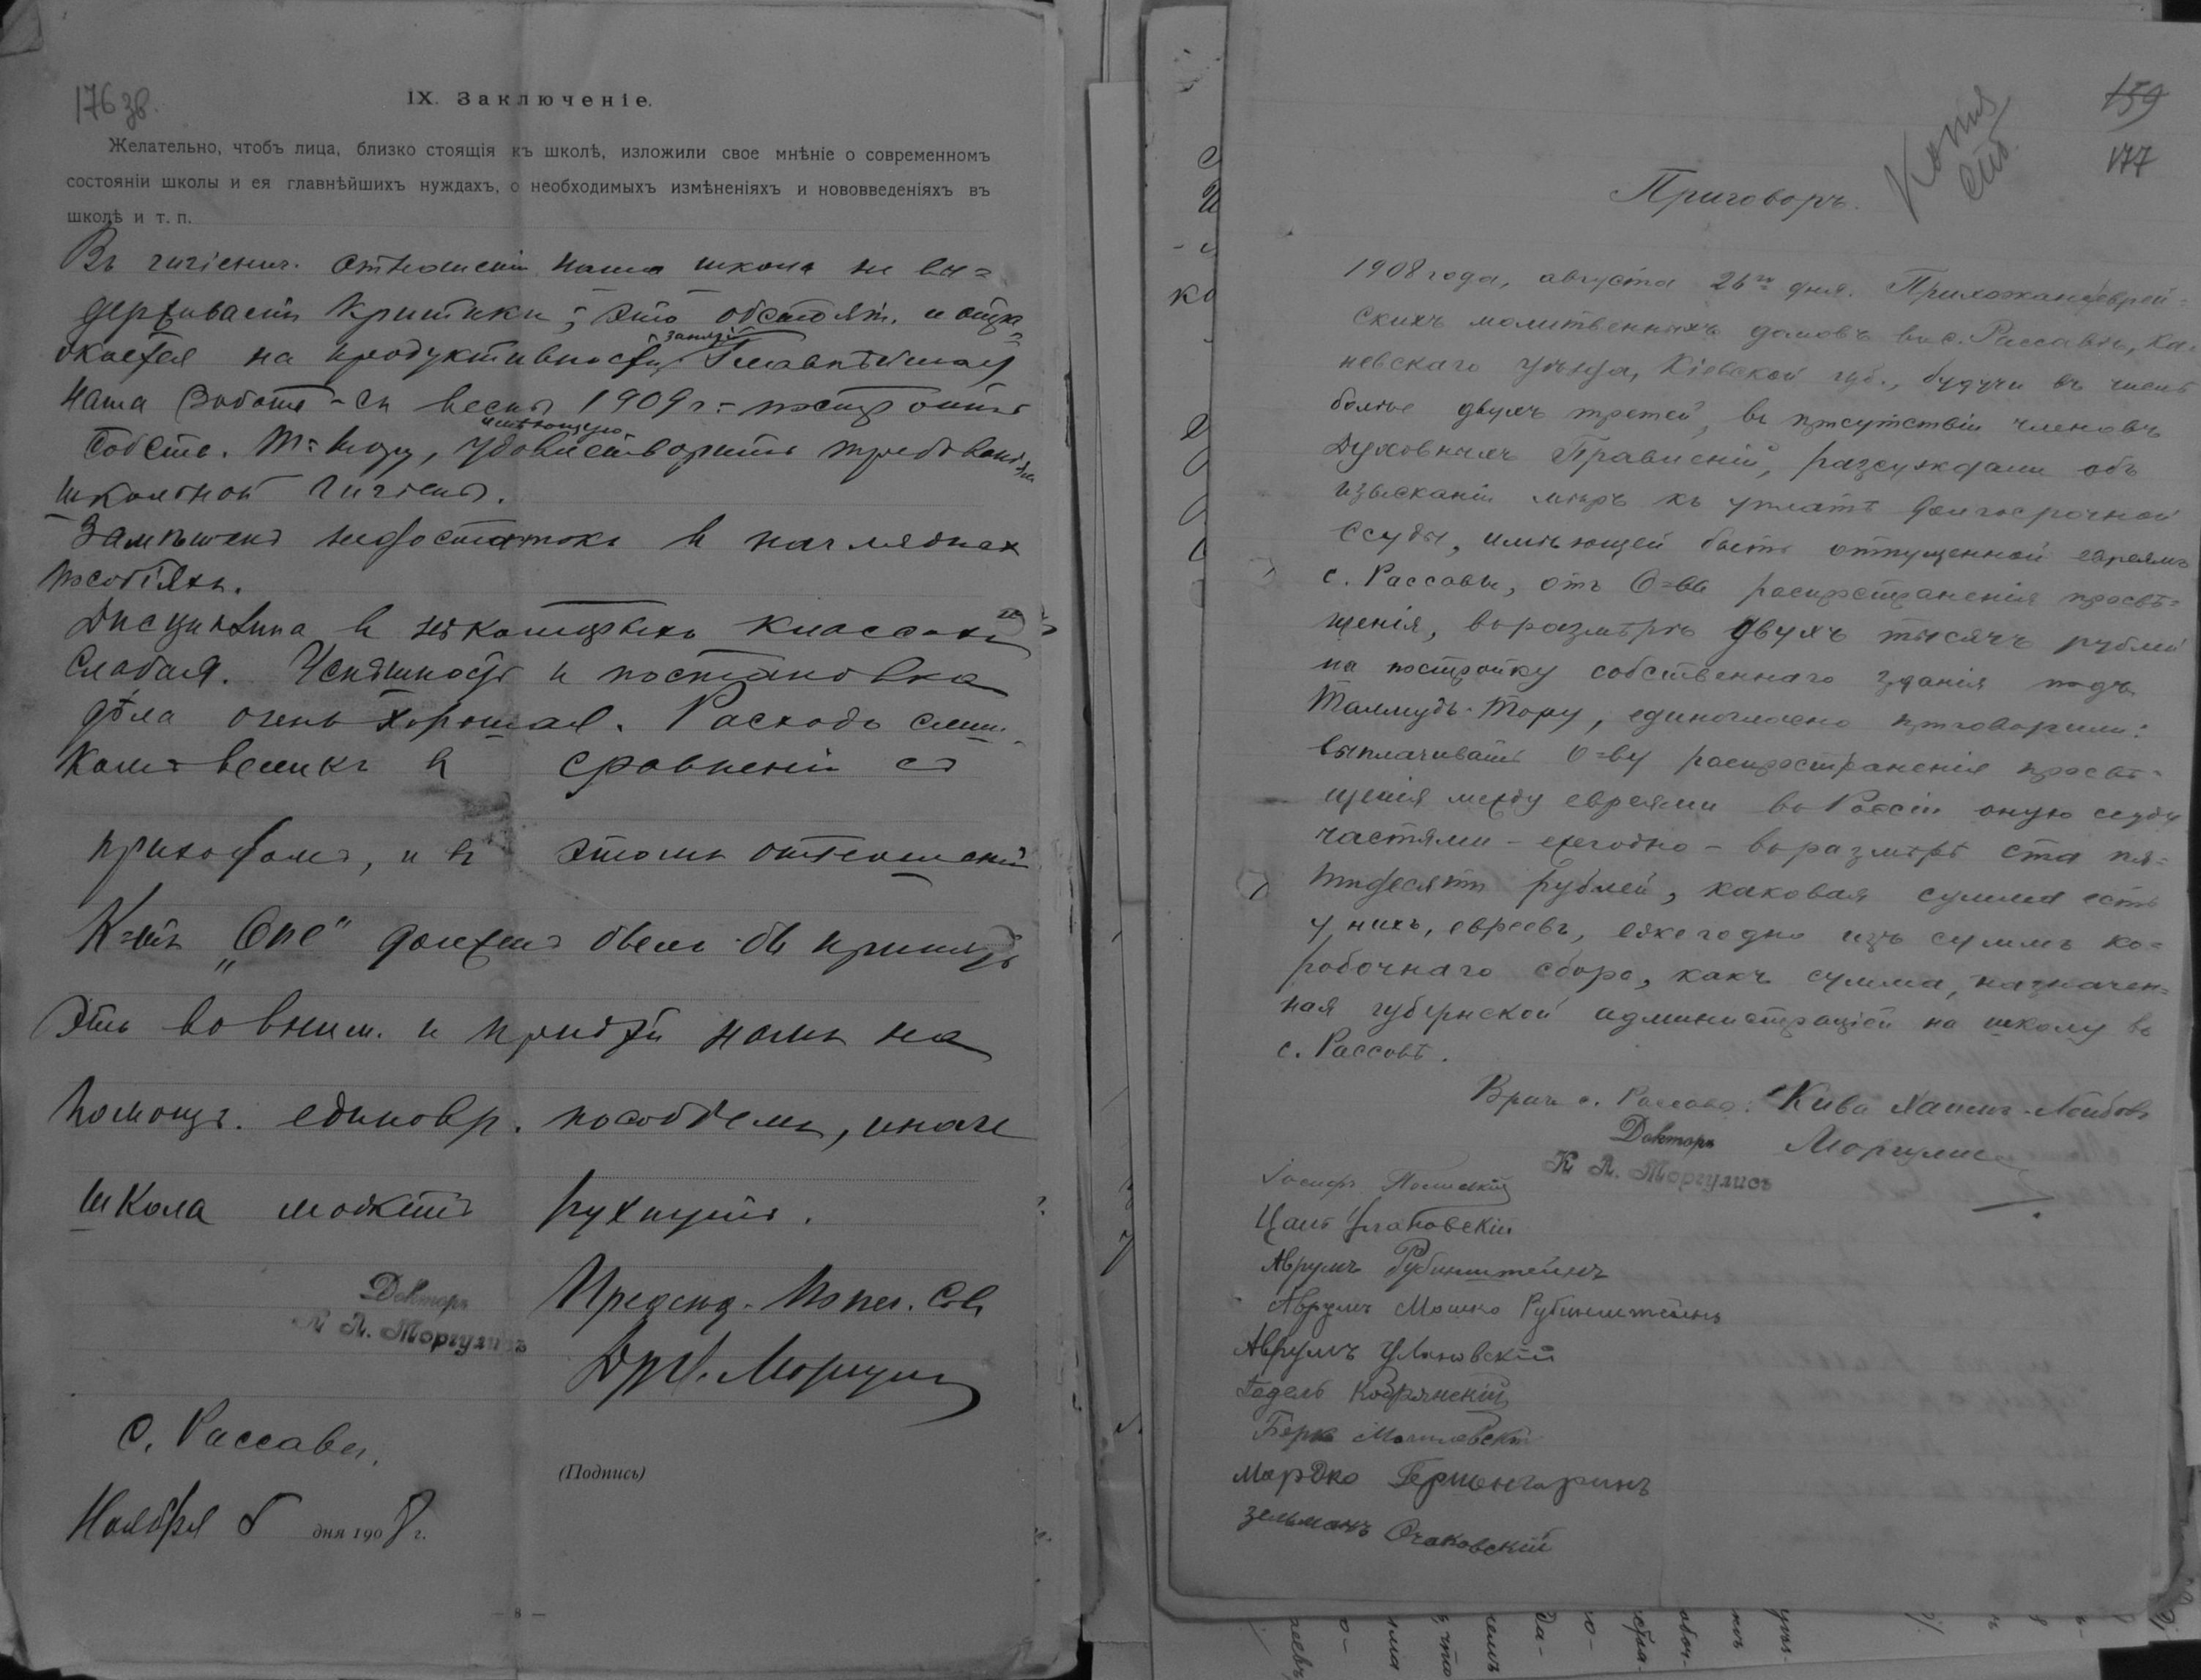 176 зв.
IX. Заключеніе.
Желательно, чтобъ лица, близко стоящія къ школѣ, изложили свое мнѣніе о современномъ
состояніи школы и ея главнѣйшихъ нуждахъ, о необходимыхъ измѣненіяхъ и нововведеніяхъ въ
школѣ и т. п.
Въ гигіенич. отношеніи наша школа не вы=
держиваетъ критики; это обстоят. и отра
жается на продуктивности занятій. Главнѣйшая
наша забота - съ весны 1909 г. = построить
собств. Т=Тору, имѣющую удовлетворить требованіямъ
школьной гигіены.
Замѣченъ недостатокъ въ наглядныхъ
пособіяхъ.
Дисциплина въ нѣкоторыхъ классахъ
слабая. Успѣшность и постановка
дѣла очень хорошая. Расходъ слиш.
комъ великъ въ сравненіи съ
приходомъ, и въ этомъ отношеніи
К=тъ „Опе" долженъ былъ-бы принять
это во вним. и придти намъ на
помощь. единовр. пособіемъ, иначе
школа можетъ рухнуть.
Докторъ
К Л. Моргулисъ
Предсѣд. Попеч. Сов.
Др К. Моргулис
с. Рассава.
(Подпись)
Ноября 5 дня 1908 г.
— 8 —
159
177
Копія
Приговоръ.
1908 года, августа 26го дня. Прихожане еврей=
скихъ молитвенныхъ домовъ въ с. Рассавѣ, Ка=
невскаго уѣзда, Кіевской губ., будучи въ числѣ
болѣе двухъ третей, въ присутствіи членовъ
Духовныхъ Правленій, разсуждали объ
изысканіи мѣръ къ уплатѣ долгосрочной
ссуды, имѣющей быть отпущенной евреямъ
с. Рассавы, отъ О=ва распространенія просвѣ=
щенія, въ размѣрѣ двухъ тысячъ рублей
на постройку собственнаго зданія подъ
Талмудъ-Тору, единогласно приговорили:
выплачивать О=ву распространенія просвѣ=
щенія между евреями въ Россіи оную ссуду
частями - ежегодно - въ размѣрѣ ста пя=
тидесяти рублей, каковая сумма есть
у нихъ, евреевъ, ежегодно изъ суммъ ко=
робочнаго сбора, какъ сумма, назначен=
ная губернской администраціей на школу въ
с. Рассавѣ.
Врачъ с. Рассава: Кива Хаимъ-Лейбовъ
Моргулис
Докторъ
К Л. Моргулисъ
Іосифъ
Улановскій
Аврумъ Рубинштейнъ
Аврумъ Мошко Рубинштейнъ
Аврумъ Улановскій
Годель Кобрянскій
Берко
Мордко
Зельманъ Очаковскій